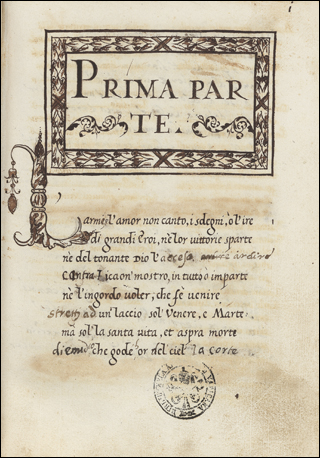 i
PRIMA PAR
TE.
L'arme, l'amor non canto, i sdegni, ò l'ire
di grandi Eroi, nè lor vittorie sparte
nè del tonante Dio l'accese, ardire
contra Licaon' mostro, in tutto ò imparte
nè l'ingordo voler, che fe venire
ad un laccio sol' Venere, e Marte
mà sol' la santa vita, et aspra morte
di che gode hor del ciel' la corte